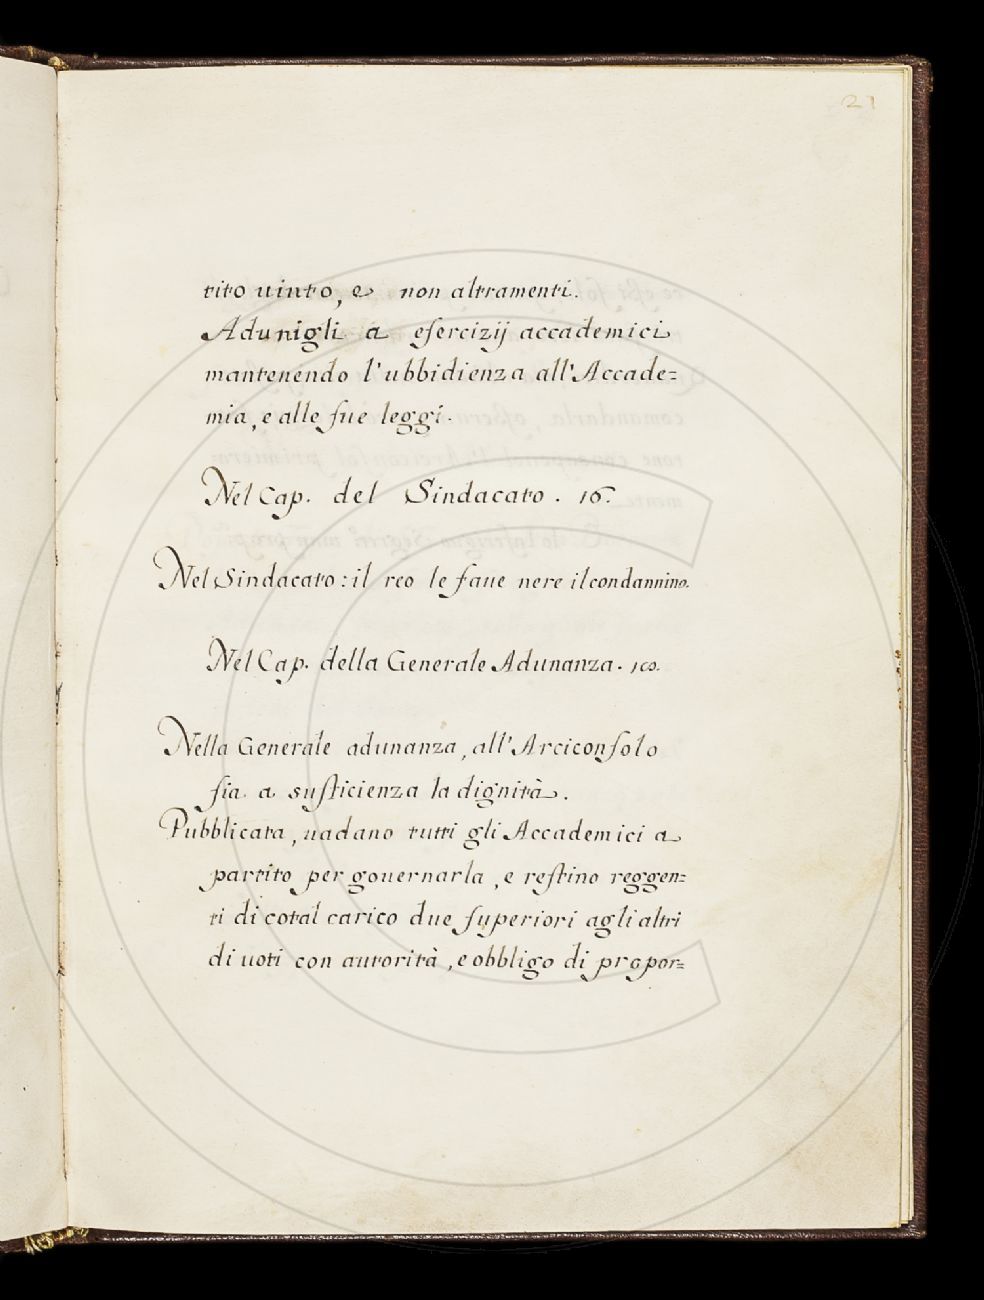 21
tito uinto, e non altramenti.
Adunigli a esercizij accademici
mantenendo l'ubbidienza all'Accade=
mia, e alle sue leggi.
Nel Cap. del Sindacato. 16.
Nel Sindacato: il reo le faue nere il condannino.
Nel Cap. della Generale Adunanza.
Nella Generale adunanza, all'Arciconsolo
sia a sufficienza la dignità.
Pubblicata, uadano tutti gli Accademici a
partito per gouernarla, e restino reggen=
ti di cotal carico due superiori agli altri
di uoti con autorità, e obbligo di propor=